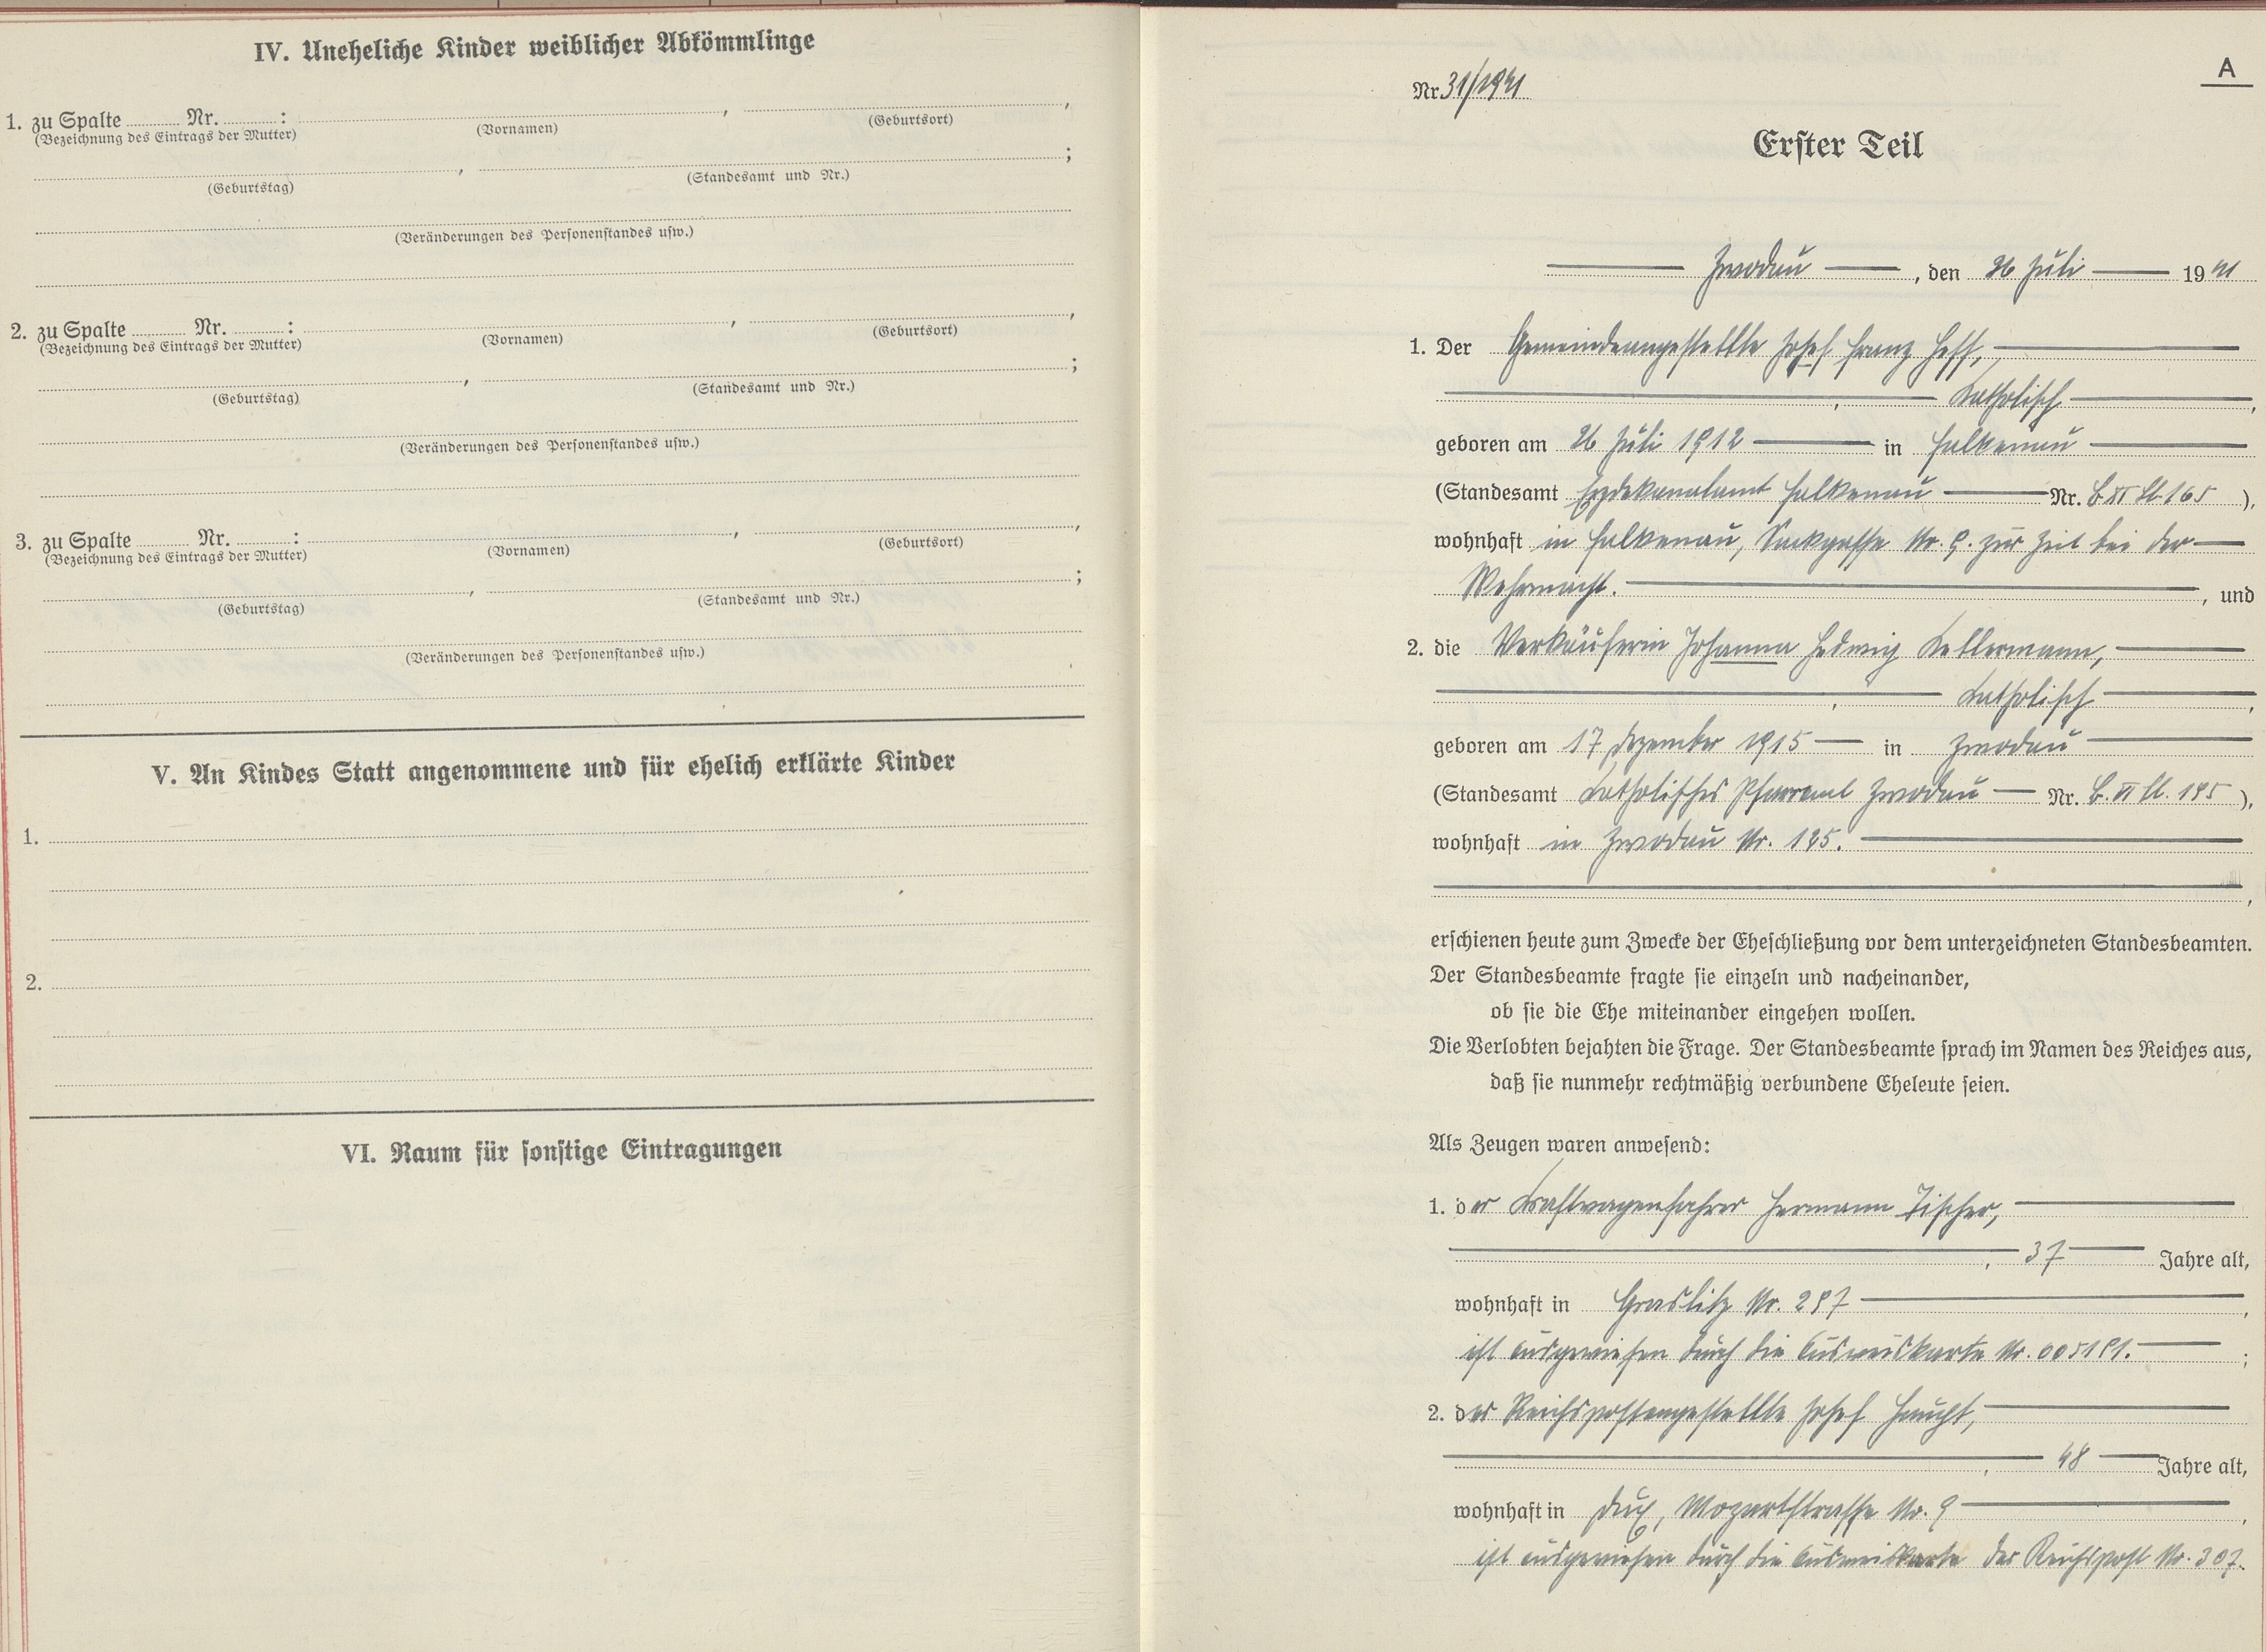 IV. Uneheliche Kinder weiblicher Abkömmlinge
1. zu Spalte Nr. : , ,
(Bezeichnung des Eintrags der Mutter) (Vornamen) (Geburtsort)
, ;
(Geburtstag) (Standesamt und Nr.)
(Veränderungen des Personenstandes usw.)
2. zu Spalte Nr. : , ,
(Bezeichnung des Eintrags der Mutter) (Vornamen) (Geburtsort)
, ;
(Geburtstag) (Standesamt und Nr.)
(Veränderungen des Personenstandes usw.)
3. zu Spalte Nr. : , ,
(Bezeichnung des Eintrags der Mutter) (Vornamen) (Geburtsort)
, ;
(Geburtstag) (Standesamt und Nr.)
(Veränderungen des Personenstandes usw.)
V. An Kindes Statt angenommene und für ehelich erklärte Kinder
1.
2.
VI. Raum für sonstige Eintragungen
A
Nr. 31/1941
Erster Teil
Zwodau, den 26 Juli 1941
1. Der Gemeindeangestellte Josef Franz Hess,
, katholisch,
geboren am 26 Juli 1912 in Falkenau
(Standesamt Erzdekanalamt Falkenau Nr. B XI Bl 165),
wohnhaft in Falkenau, Sackgasse Nr. 9. zur Zeit bei der
Wehrmacht. , und
2. die Verkäuferin Johanna Hedwig Kellermann,
, katholisch,
geboren am 17 Dezember 1915 in Zwodau
(Standesamt Katholisches Pfarramt Zwodau Nr. B. II Bl. 195),
wohnhaft in Zwodau Nr. 125.
,
erschienen heute zum Zwecke der Eheschließung vor dem unterzeichneten Standesbeamten.
Der Standesbeamte fragte sie einzeln und nacheinander,
ob sie die Ehe miteinander eingehen wollen.
Die Verlobten bejahten die Frage. Der Standesbeamte sprach im Namen des Reiches aus,
daß sie nunmehr rechtmäßig verbundene Eheleute seien.
Als Zeugen waren anwesend:
1. der Kraftwagenfahrer Hermann Tischer,
, 37 Jahre alt,
wohnhaft in Graslitz Nr. 297,
ist ausgewiesen durch die Ausweiskarte Nr. 005191. ;
2. der Reichspostangestellte Josef Haucht,
, 48 Jahre alt,
wohnhaft in Dux, Mozartstrasse Nr. 9,
ist ausgewiesen durch die Ausweiskarte der Reichspost Nr. 307.